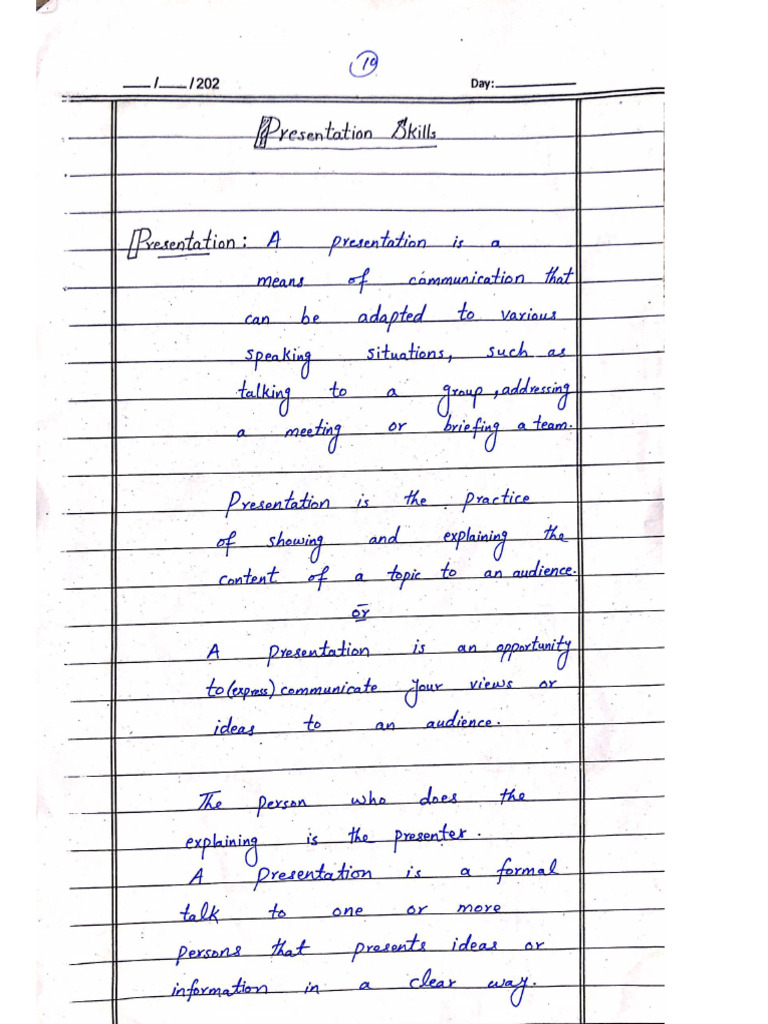 19
__/__/202 Day:______
Presentation Skills
Presentation: A presentation is a
means of communication that
can be adapted to various
speaking situations, such as
talking to a group, addressing
a meeting or briefing a team.
Presentation is the practice
of showing and explaining the
content of a topic to an audience.
or
A presentation is an opportunity
to (express) communicate your views or
ideas to an audience.
The person who does the
explaining is the presenter.
A presentation is a formal
talk to one or more
persons that presents ideas or
information in a clear way.